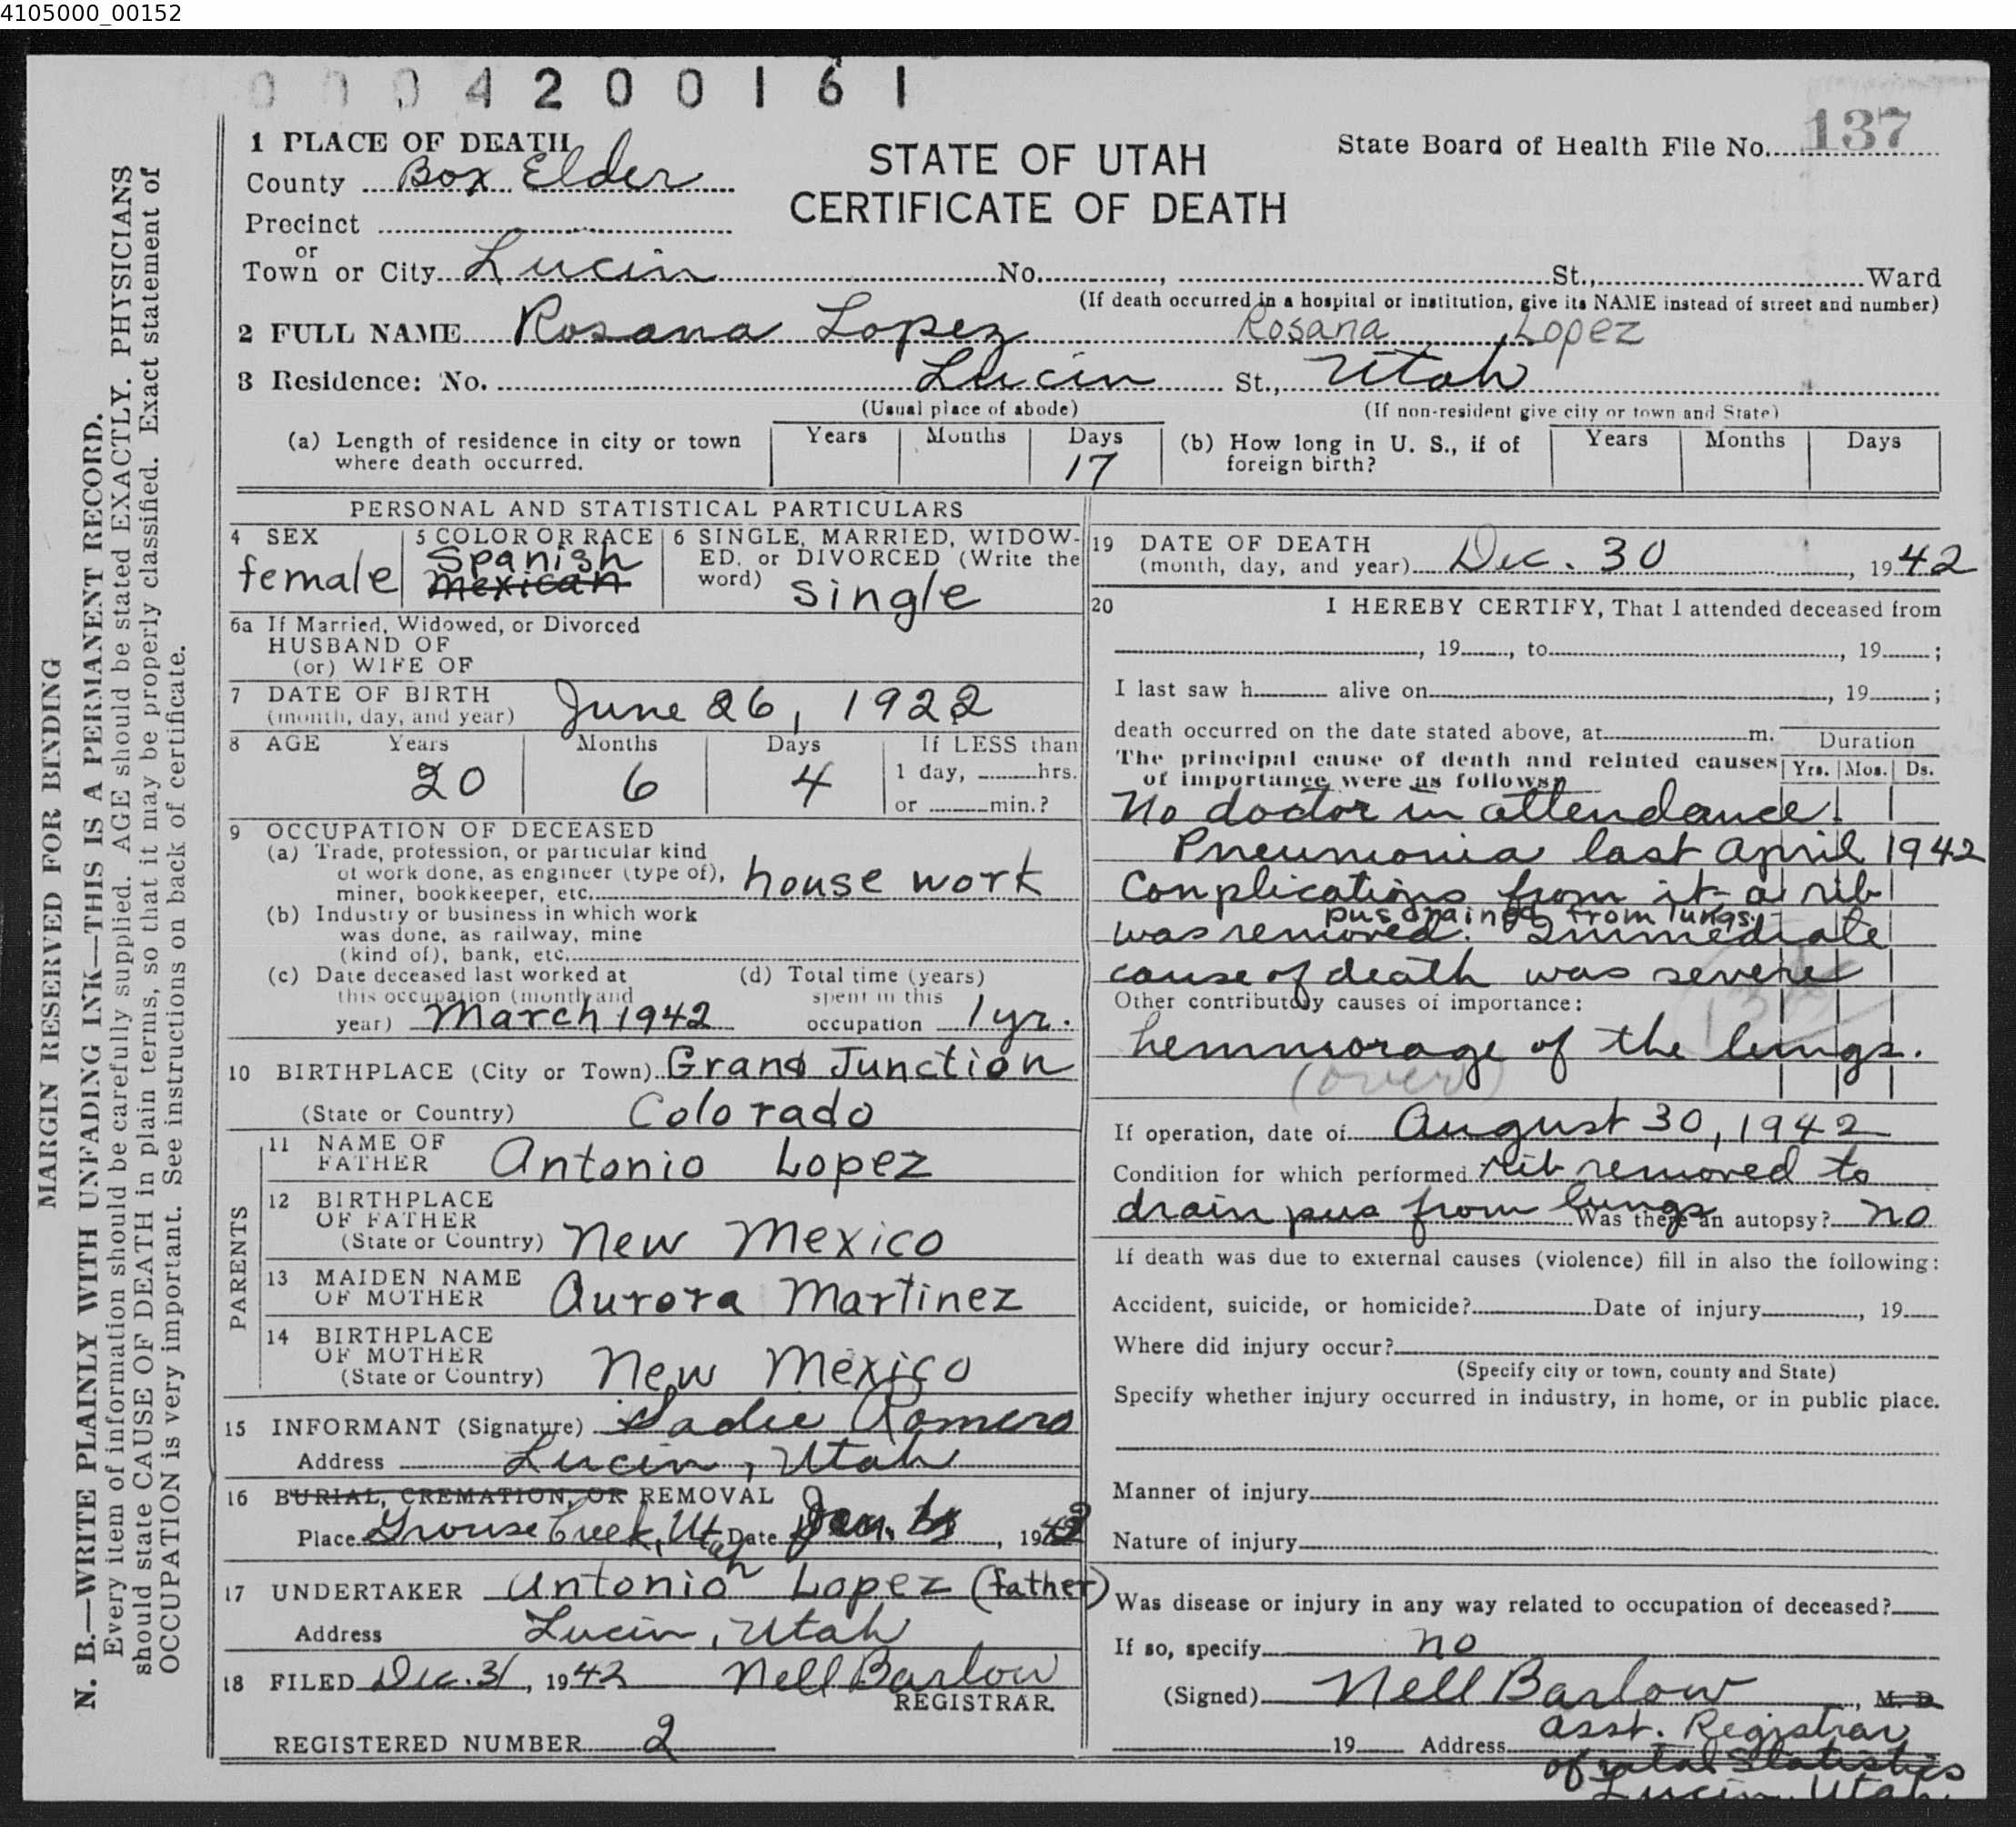 4105000_00152
0004200161
1 PLACE OF DEATH
County Box Elder
STATE OF UTAH
CERTIFICATE OF DEATH
State Board of Health File No. 137
Precinct
or
Town or City Lucin No. , St., Ward
(If death occurred in a hospital or institution, give its NAME instead of street and number)
2 FULL NAME Rosana Lopez Rosana Lopez
3 Residence: No. Lucin St., Utah
(Usual place of abode) (If non-resident give city or town and State)
(a) Length of residence in city or town where death occurred. Years Months Days 17
(b) How long in U. S., if of foreign birth? Years Months Days
PERSONAL AND STATISTICAL PARTICULARS
4 SEX female
5 COLOR OR RACE Spanish Mexican
6 SINGLE, MARRIED, WIDOWED, or DIVORCED (Write the word) single
6a If Married, Widowed, or Divorced
HUSBAND OF
(or) WIFE OF
7 DATE OF BIRTH
(month, day, and year) June 26, 1922
8 AGE Years Months Days If LESS than
20 6 4 1 day, hrs.
or min.?
9 OCCUPATION OF DECEASED
(a) Trade, profession, or particular kind
of work done, as engineer (type of),
miner, bookkeeper, etc. house work
(b) Industry or business in which work
was done, as railway, mine
(kind of), bank, etc.
(c) Date deceased last worked at
this occupation (month and
year) March 1942
(d) Total time (years)
spent in this
occupation 1 yr.
10 BIRTHPLACE (City or Town) Grand Junction
(State or Country) Colorado
PARENTS
11 NAME OF
FATHER Antonio Lopez
12 BIRTHPLACE
OF FATHER
(State or Country) New Mexico
13 MAIDEN NAME
OF MOTHER Aurora Martinez
14 BIRTHPLACE
OF MOTHER
(State or Country) New Mexico
15 INFORMANT (Signature) Sadie Romero
Address Lucin, Utah
16 BURIAL, CREMATION, OR REMOVAL
Place Grouse Creek, Utah Date Jan. , 19
17 UNDERTAKER Antonio Lopez (father)
Address Lucin, Utah
18 FILED Dec. 31, 1942 Nell Barlow
REGISTRAR.
REGISTERED NUMBER 2
19 DATE OF DEATH
(month, day, and year) Dec. 30, 1942
20 I HEREBY CERTIFY, That I attended deceased from
, 19 , to , 19 ;
I last saw h alive on , 19 ;
death occurred on the date stated above, at m.
Duration
The principal cause of death and related causes
of importance were as follows:
Yrs. Mos. Ds.
No doctor in attendance.
Pneumonia last April 1942
Complications from it a rib
pus drained from lungs.
was removed. Immediate
cause of death was severe
Other contributory causes of importance:
hemmorage of the lungs.
(over)
If operation, date of August 30, 1942
Condition for which performed rib removed to
drain pus from lungs Was there an autopsy? no
If death was due to external causes (violence) fill in also the following:
Accident, suicide, or homicide? Date of injury , 19
Where did injury occur?
(Specify city or town, county and State)
Specify whether injury occurred in industry, in home, or in public place.
Manner of injury
Nature of injury
Was disease or injury in any way related to occupation of deceased?
If so, specify no
(Signed) Nell Barlow, M. D.
19 Address asst. Registrar
of vital Statistics
Lucin, Utah.
MARGIN RESERVED FOR BINDING
N. B.—WRITE PLAINLY WITH UNFADING INK—THIS IS A PERMANENT RECORD.
Every item of information should be carefully supplied. AGE should be stated EXACTLY. PHYSICIANS
should state CAUSE OF DEATH in plain terms, so that it may be properly classified. Exact statement of
OCCUPATION is very important. See instructions on back of certificate.